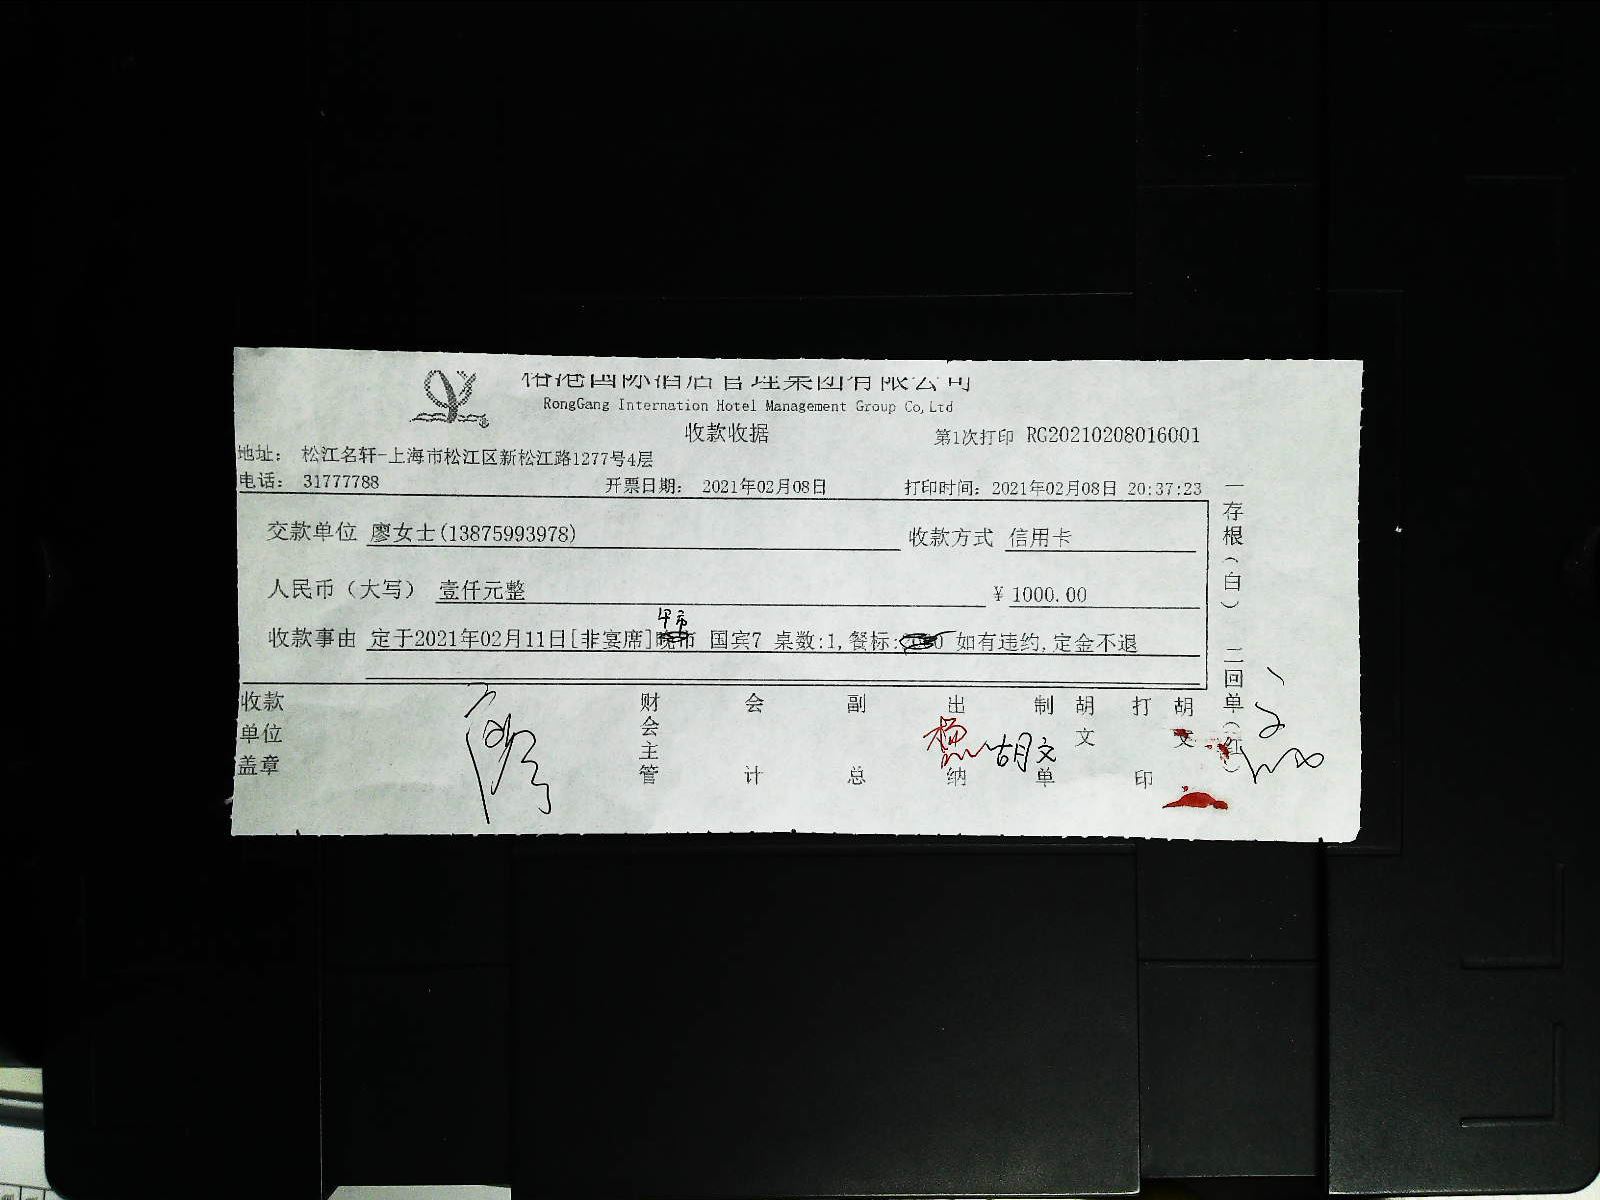 港国际酒店管理集团有限公司
RongGang Internation Hotel Management Group Co,Ltd
收款收据
第1次打印 RG20210208016001
地址： 松江名轩-上海市松江区新松江路1277号4层
电话： 31777788 开票日期： 2021年02月08日 打印时间：2021年02月08日 20:37:23
交款单位 廖女士(13875993978) 收款方式 信用卡
人民币（大写） 壹仟元整 ¥ 1000.00
收款事由 定于2021年02月11日[非宴席]晚市 国宾7 桌数:1,餐标: 如有违约,定金不退
收款单位盖章
财会主管
会计
副总
出纳
胡文
制单
胡文
打印
胡文
一存根（白） 二回单（红）